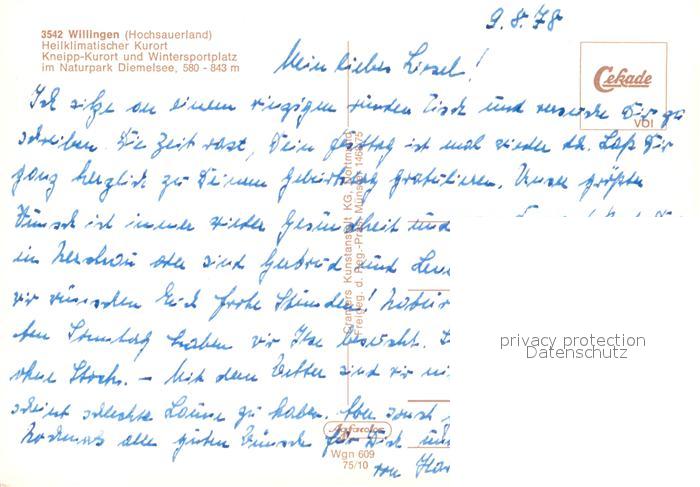 9.8.78
3542 Willingen (Hochsauerland)
Heilklimatischer Kurort
Kneipp-Kurort und Wintersportplatz
im Naturpark Diemelsee, 580 - 843 m
Cekade
VDI
Mein liebes Liesel!
Ich sitze an einem winzigen runden Tisch und versuche Dir zu
schreiben. Die Zeit rast, Dein Festtag ist mal wieder da. Laß Dir
ganz herzlich zu Deinem Geburtstag gratulieren. Unser größter
Wunsch ist immer wieder Gesundheit und
in oder sind Gertrud und
wir wünschen Euch frohe Stunden! Natür
Am Sonntag haben wir Ilse besucht.
ohne Stock. — Mit dem Wetter sind wir
scheint schlechte Laune zu haben. Aber sonst
Nochmals alle guten Wünsche für Dich und
von
Cramers Kunstanstalt KG, Dortmund
Freigeg. d. Reg.-Präs. Münster
Agfacolor
Wgn 609
75/10
privacy protection
Datenschutz